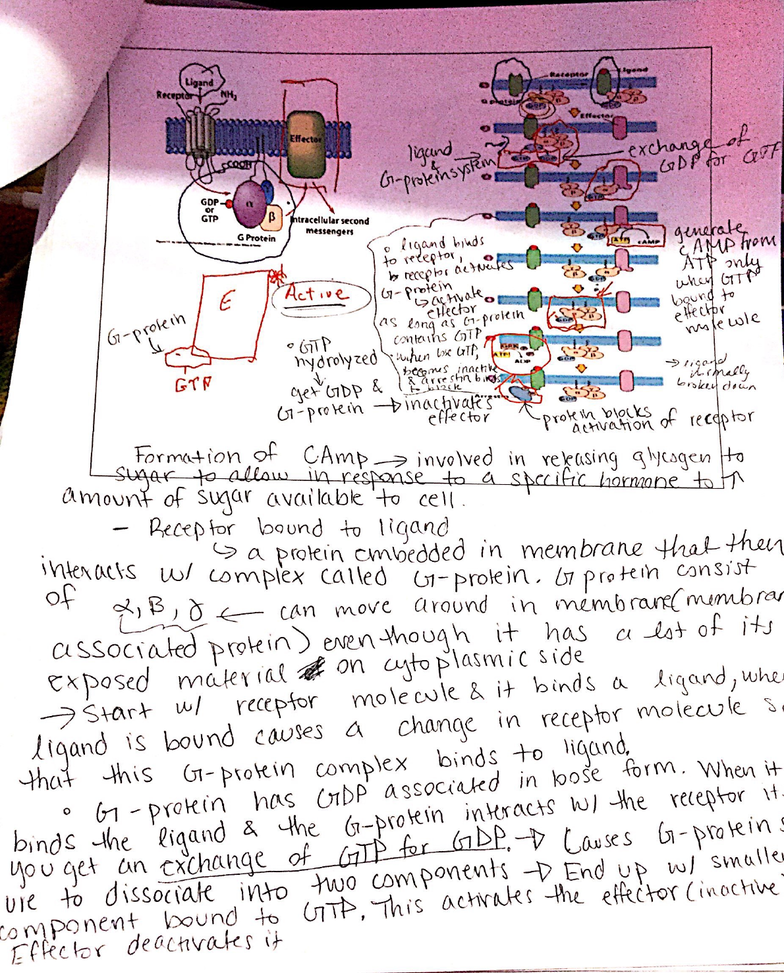 Ligand
Receptor
NH2
Effector
COOH
GDP
or
GTP
α
β
G Protein
Intracellular second
messengers
Receptor
Ligand
Effector
ligand
&
G-protein system
exchange of
GDP for GTP
generate
CAMP from
ATP only
when GTP
bound to
effector
molecule
→ ligand
normally
broken down
E
Active
G-protein
GTP
◦ GTP
hydrolyzed
get GDP &
G-protein → inactivates
effector
◦ ligand binds
to receptor,
receptor activates
G-protein
↳ activate
effector
as long as G-protein
contains GTP
when lose GTP,
becomes inactive
& arrestin binds
to block
protein blocks
activation of receptor
Formation of CAmp → involved in releasing glycogen to
sugar to allow in response to a specific hormone to ↑
amount of sugar available to cell.
- Receptor bound to ligand
↳ a protein embedded in membrane that then
interacts w/ complex called G-protein. G protein consist
of α, β, γ ← can move around in membrane (membran
associated protein) even though it has a lot of its
exposed material on cytoplasmic side
→ Start w/ receptor molecule & it binds a ligand, whe
ligand is bound causes a change in receptor molecule s
that this G-protein complex binds to ligand.
◦ G-protein has GDP associated in loose form. When it
binds the ligand & the G-protein interacts w/ the receptor it
you get an exchange of GTP for GDP. → Causes G-protein s
ure to dissociate into two components → End up w/ smaller
component bound to GTP. This activates the effector (inactive)
Effector deactivates it